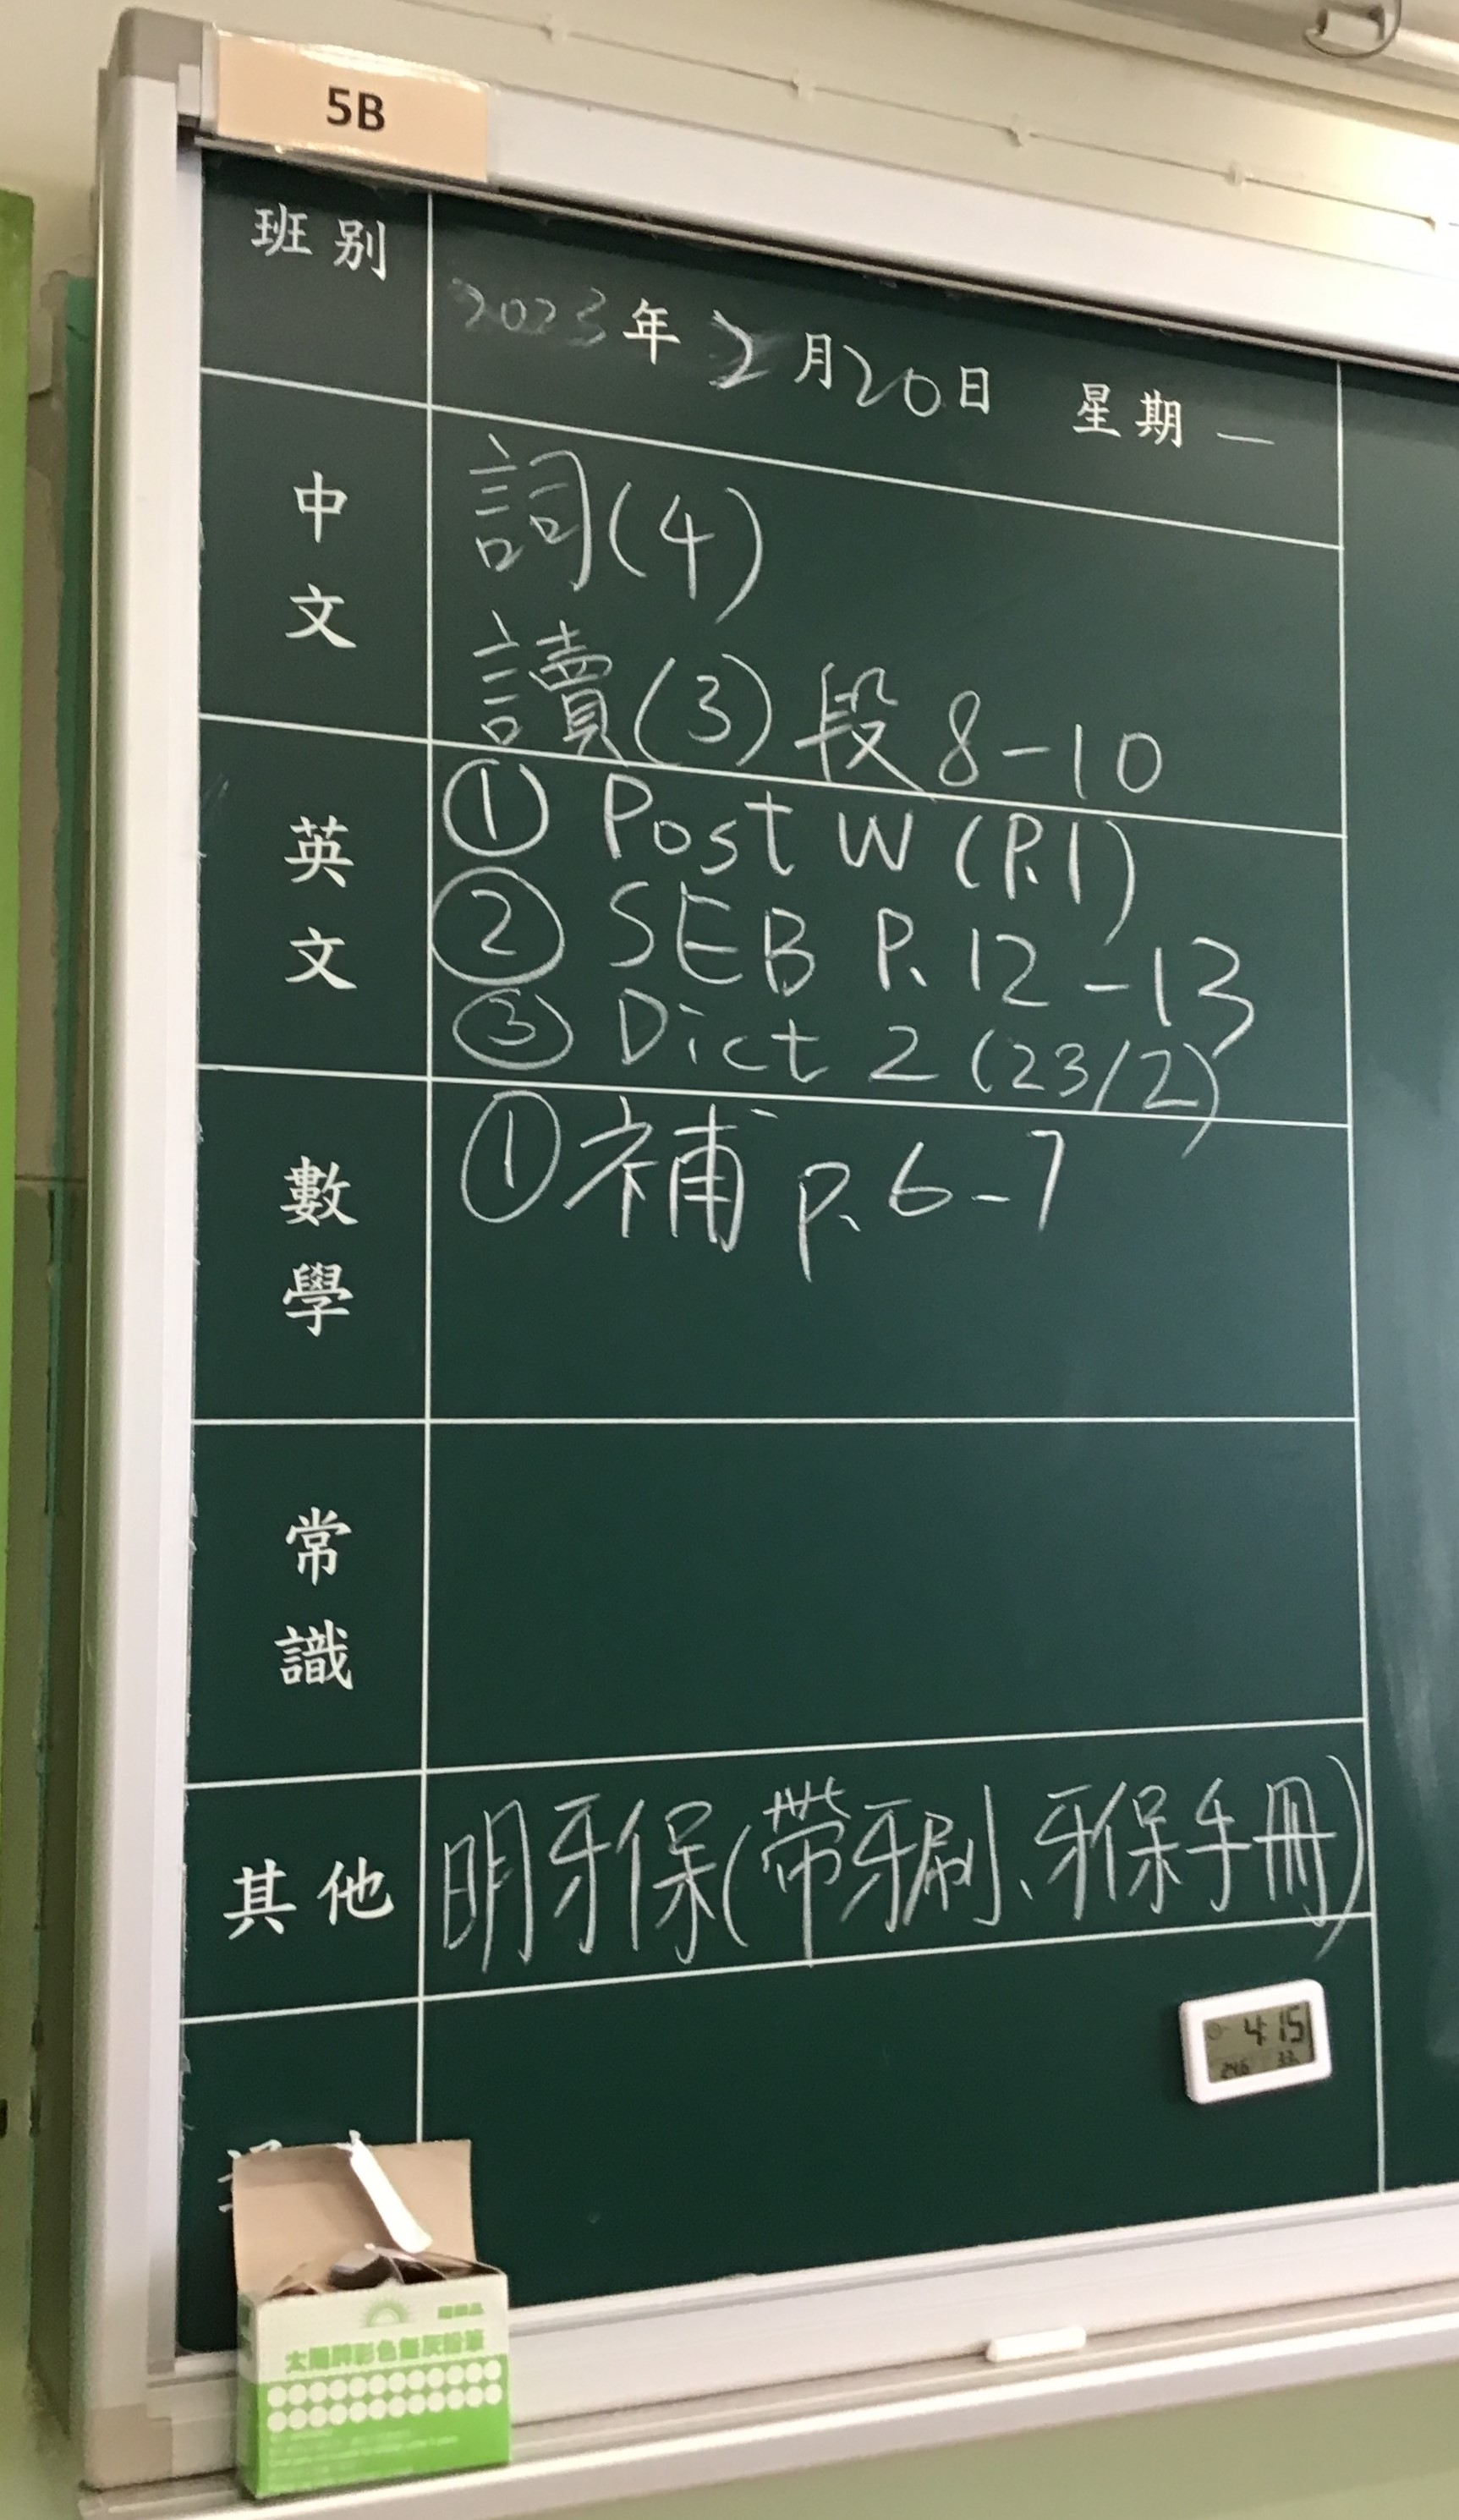 5B
班別
2023年2月20日 星期一
中文
詞(4)
讀(3)段8-10
英文
① Post W (P.1)
② SEB P.12-13
③ Dict 2 (23/2)
數學
①補 P.6-7
常識
其他
明牙保(帶牙刷、牙保手冊)
4:15
太陽牌彩色無灰粉筆